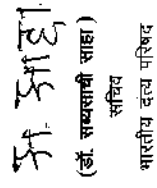 (डॉ. सब्यसाची साहा)
सचिव
भारतीय दंत्य परिषद